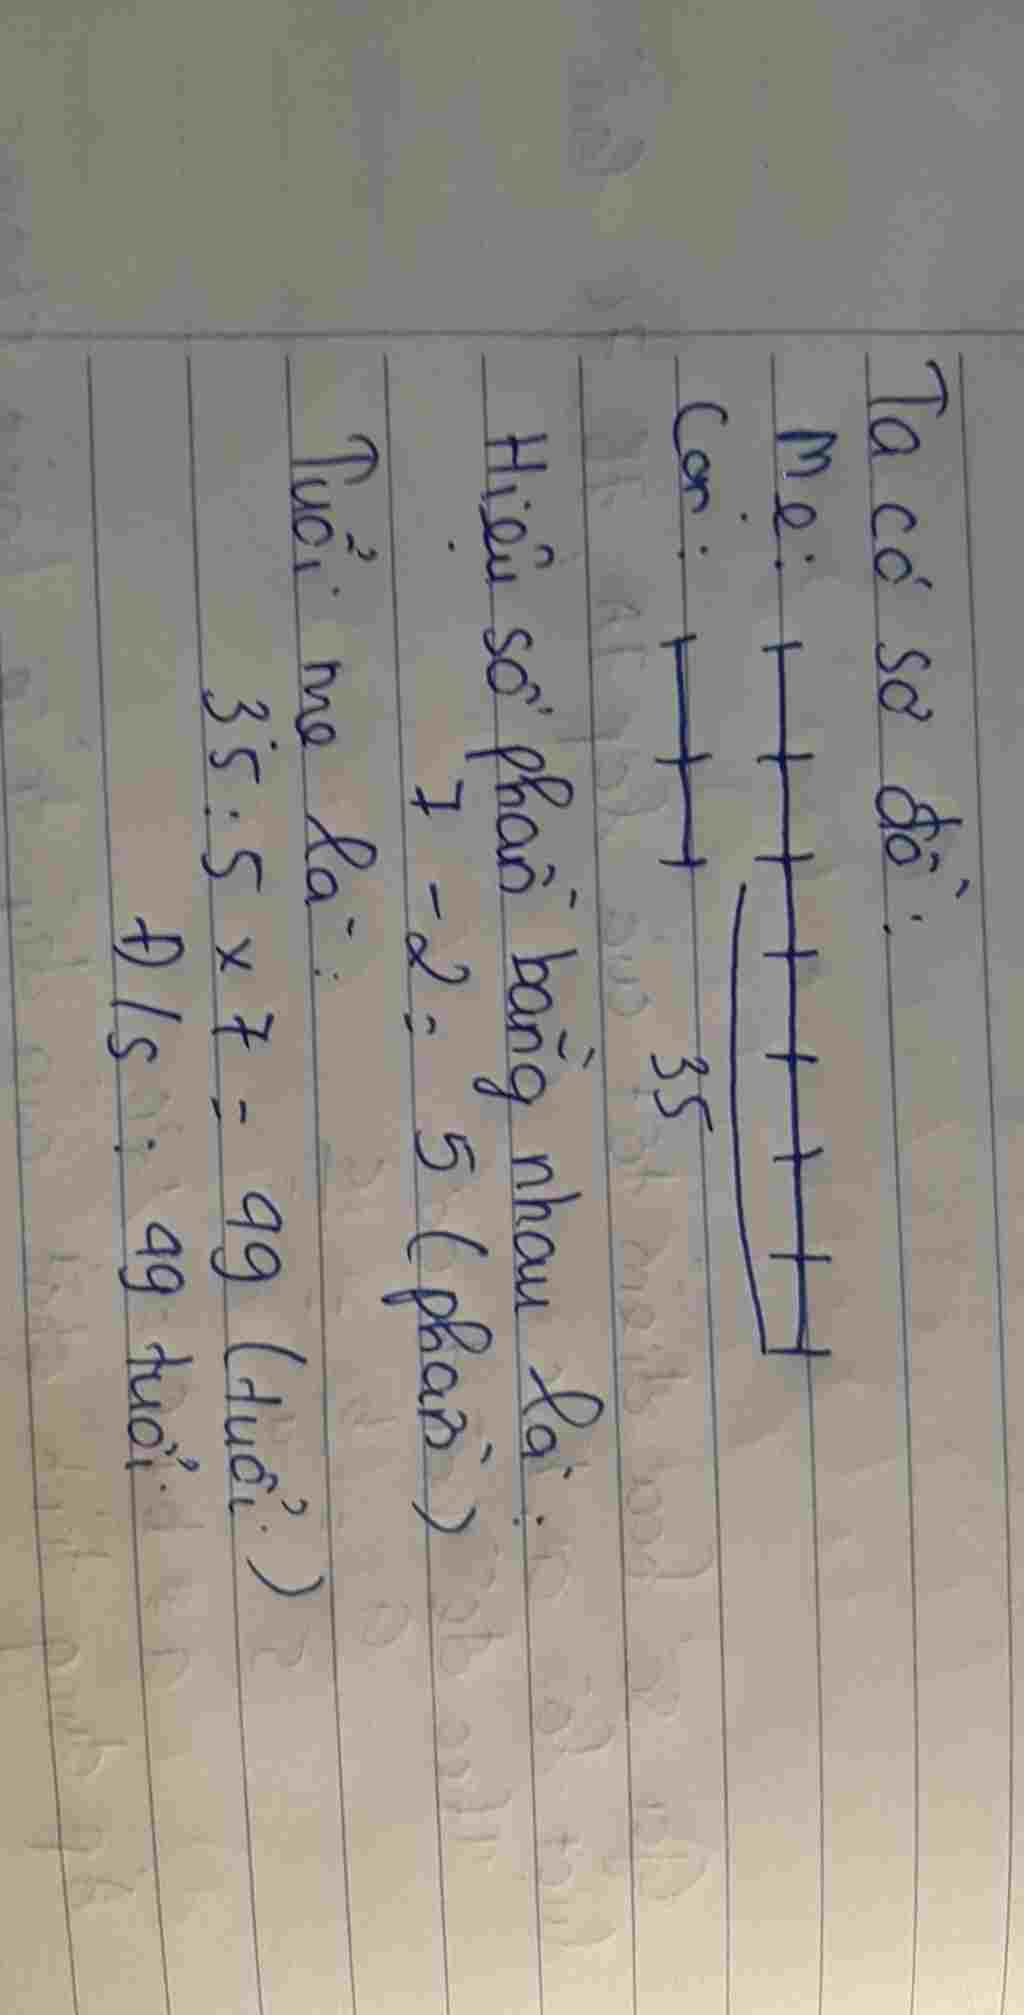 Ta có sơ đồ:
Mẹ:
Con:
35
Hiệu số phần bằng nhau là:
7 - 2 = 5 (phần)
Tuổi mẹ là:
35 : 5 x 7 = 49 (tuổi)
Đ/s: 49 tuổi